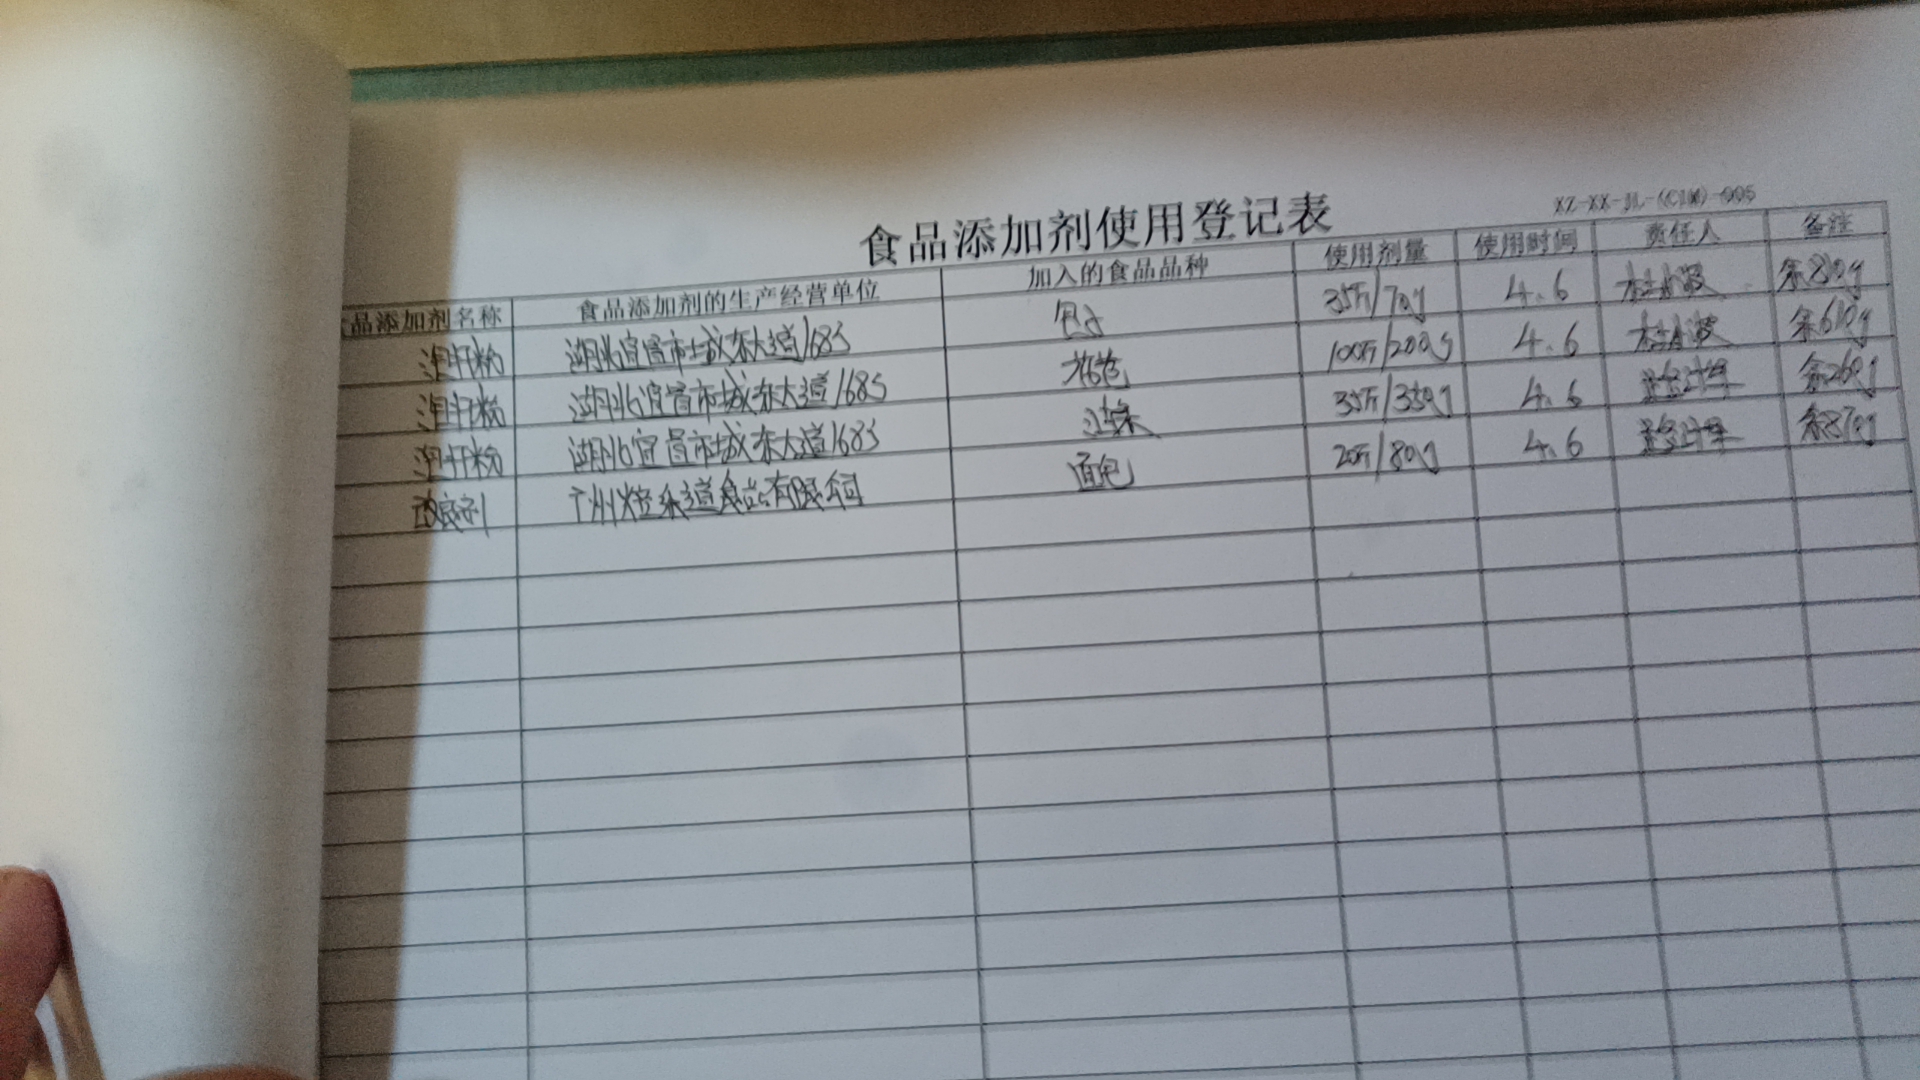 食品添加剂使用登记表
XZ-XX-JL-(CIM)-005
品添加剂名称 食品添加剂的生产经营单位 加入的食品品种 使用剂量 使用时间 责任人 备注
泡打粉 湖北宜昌市城东大道168号 包子 35斤/70g 4.6 余810g
泡打粉 湖北宜昌市城东大道168号 100斤/200g 4.6 余610g
泡打粉 湖北宜昌市城东大道168号 油条 35斤/350g 4.6 余260g
改良剂 面包 20斤/80g 4.6 余870g